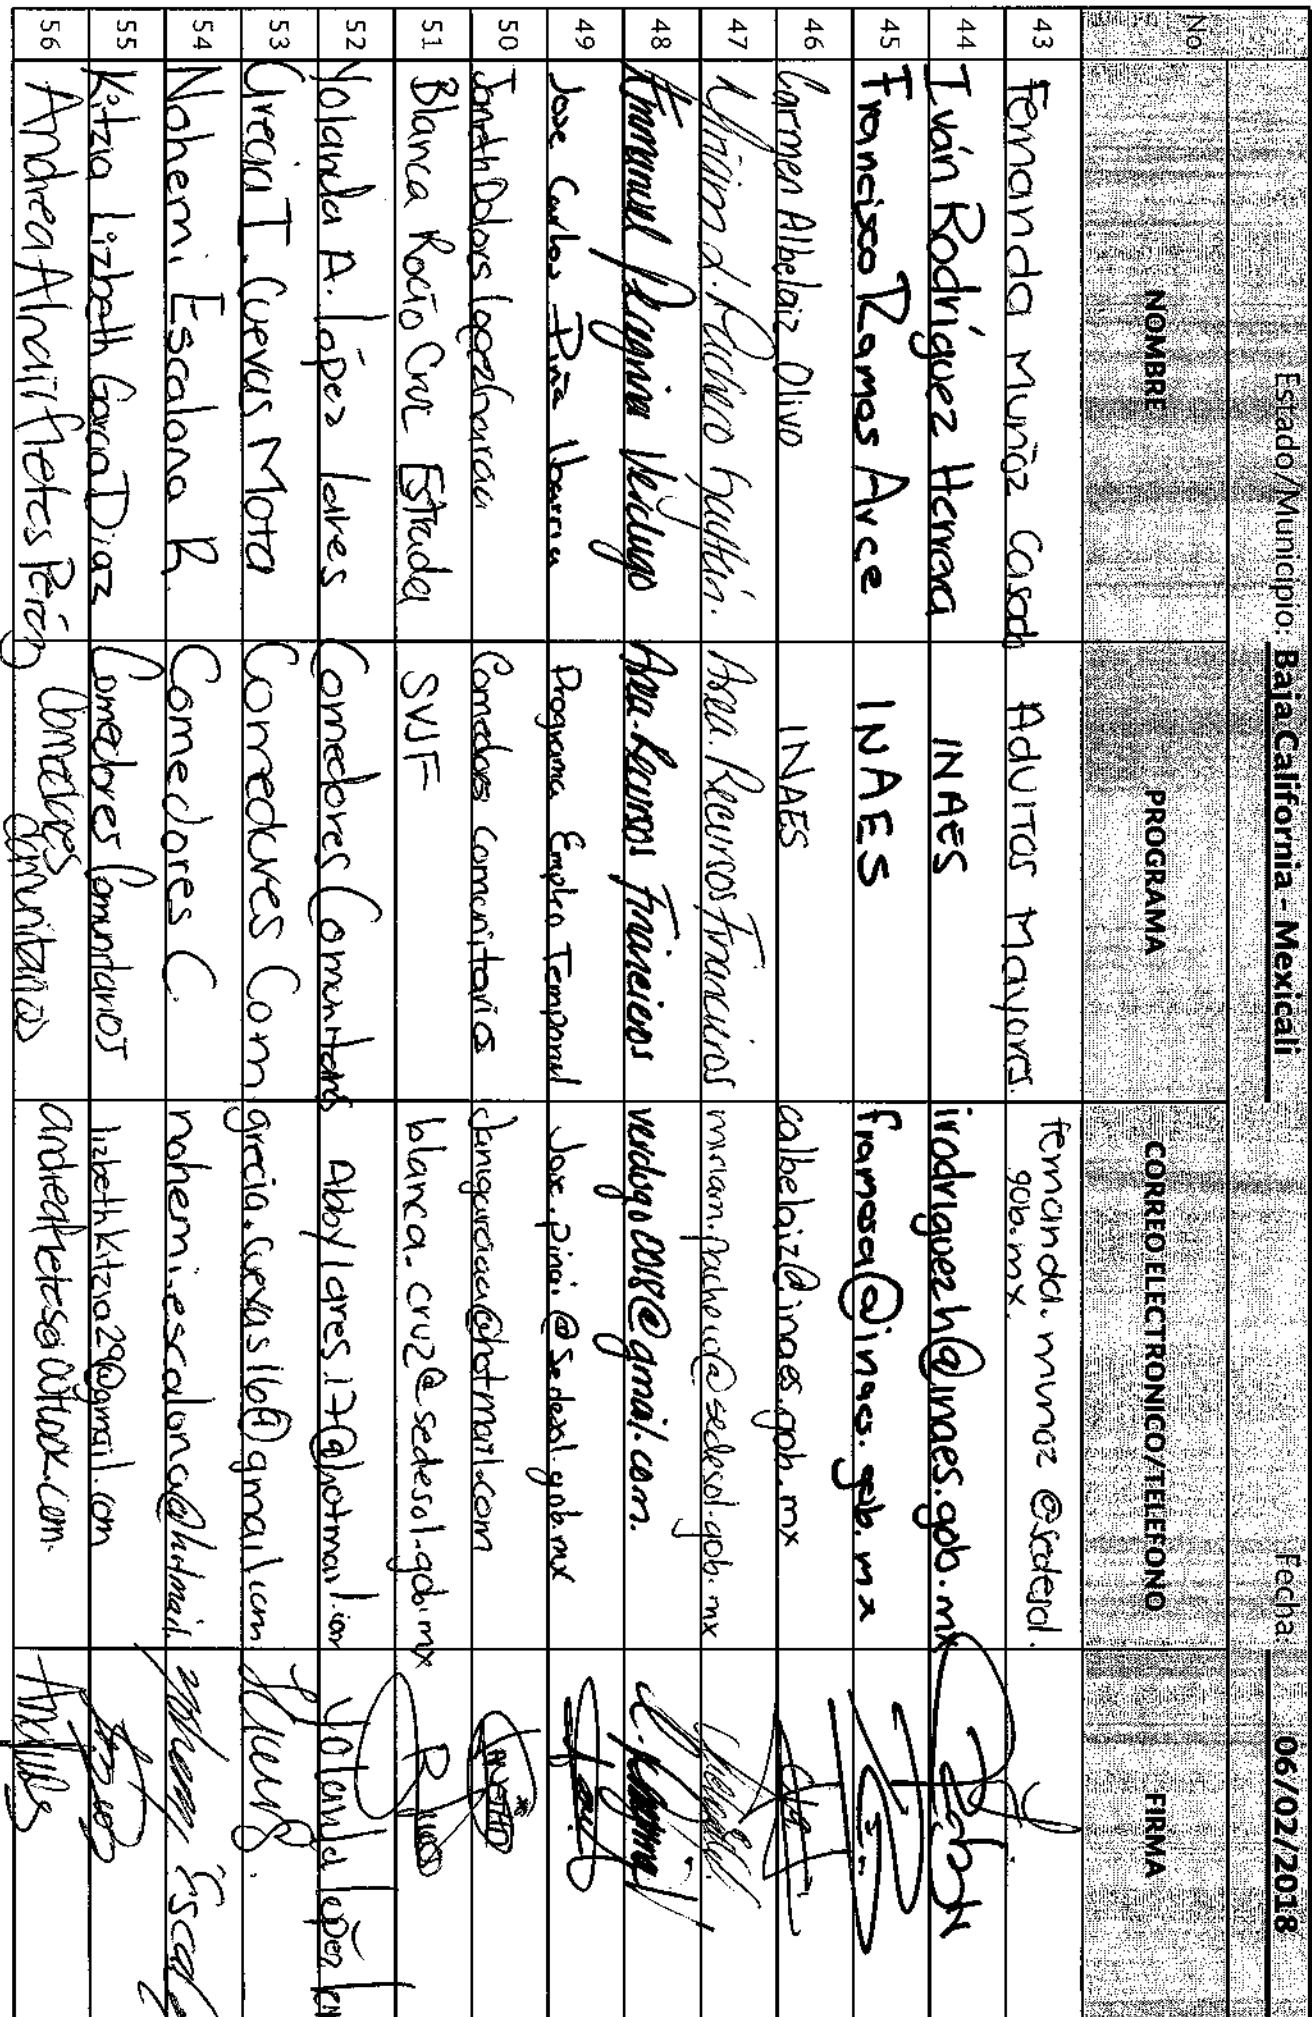 Estado/Municipio: Baja California - Mexicali Fecha: 06/02/2018
No. NOMBRE PROGRAMA CORREO ELECTRONICO/TELEFONO FIRMA
43 Fernanda Muñoz Casado Adultos Mayores. fernanda.munoz @sedesol.
gob.mx.
44 Iván Rodríguez Herrera INAES irodriguezh@inaes.gob.mx
45 Francisco Ramos Arce INAES framosa@inaes.gob.mx
46 Carmen Albelaiz Olivo INAES calbelaiz@inaes.gob.mx
47 Pacheco Area. Recursos Financieros miriam.pacheco@sedesol.gob.mx
48 Emmanuel Verdugo Area. Recursos Financieros verdugo0018@gmail.com.
49 Jose Carlos Piña Ibarra Programa Empleo Temporal Jose.pina.@sedesol.gob.mx
50 Comedores Comunitarios @hotmail.com
51 Blanca Rocío Cruz Estrada SVJF blanca.cruz@sedesol.gob.mx
52 Yolanda A. López Lares Comedores Comunitarios Abbylares.17@hotmail.com Yolanda López
53 Grecia I. Cuevas Mota Comedores Com grecia.cuevas16@gmail.com
54 Nohemi Escalona R. Comedores C. nohemi.escalona@hotmail. Nohemi
55 Kitzia Lizbeth García Diaz Comedores Comunitarios lizbethkitzia29@gmail.com
56 Andrea Fletes Pérez Comedores
Comunitarios